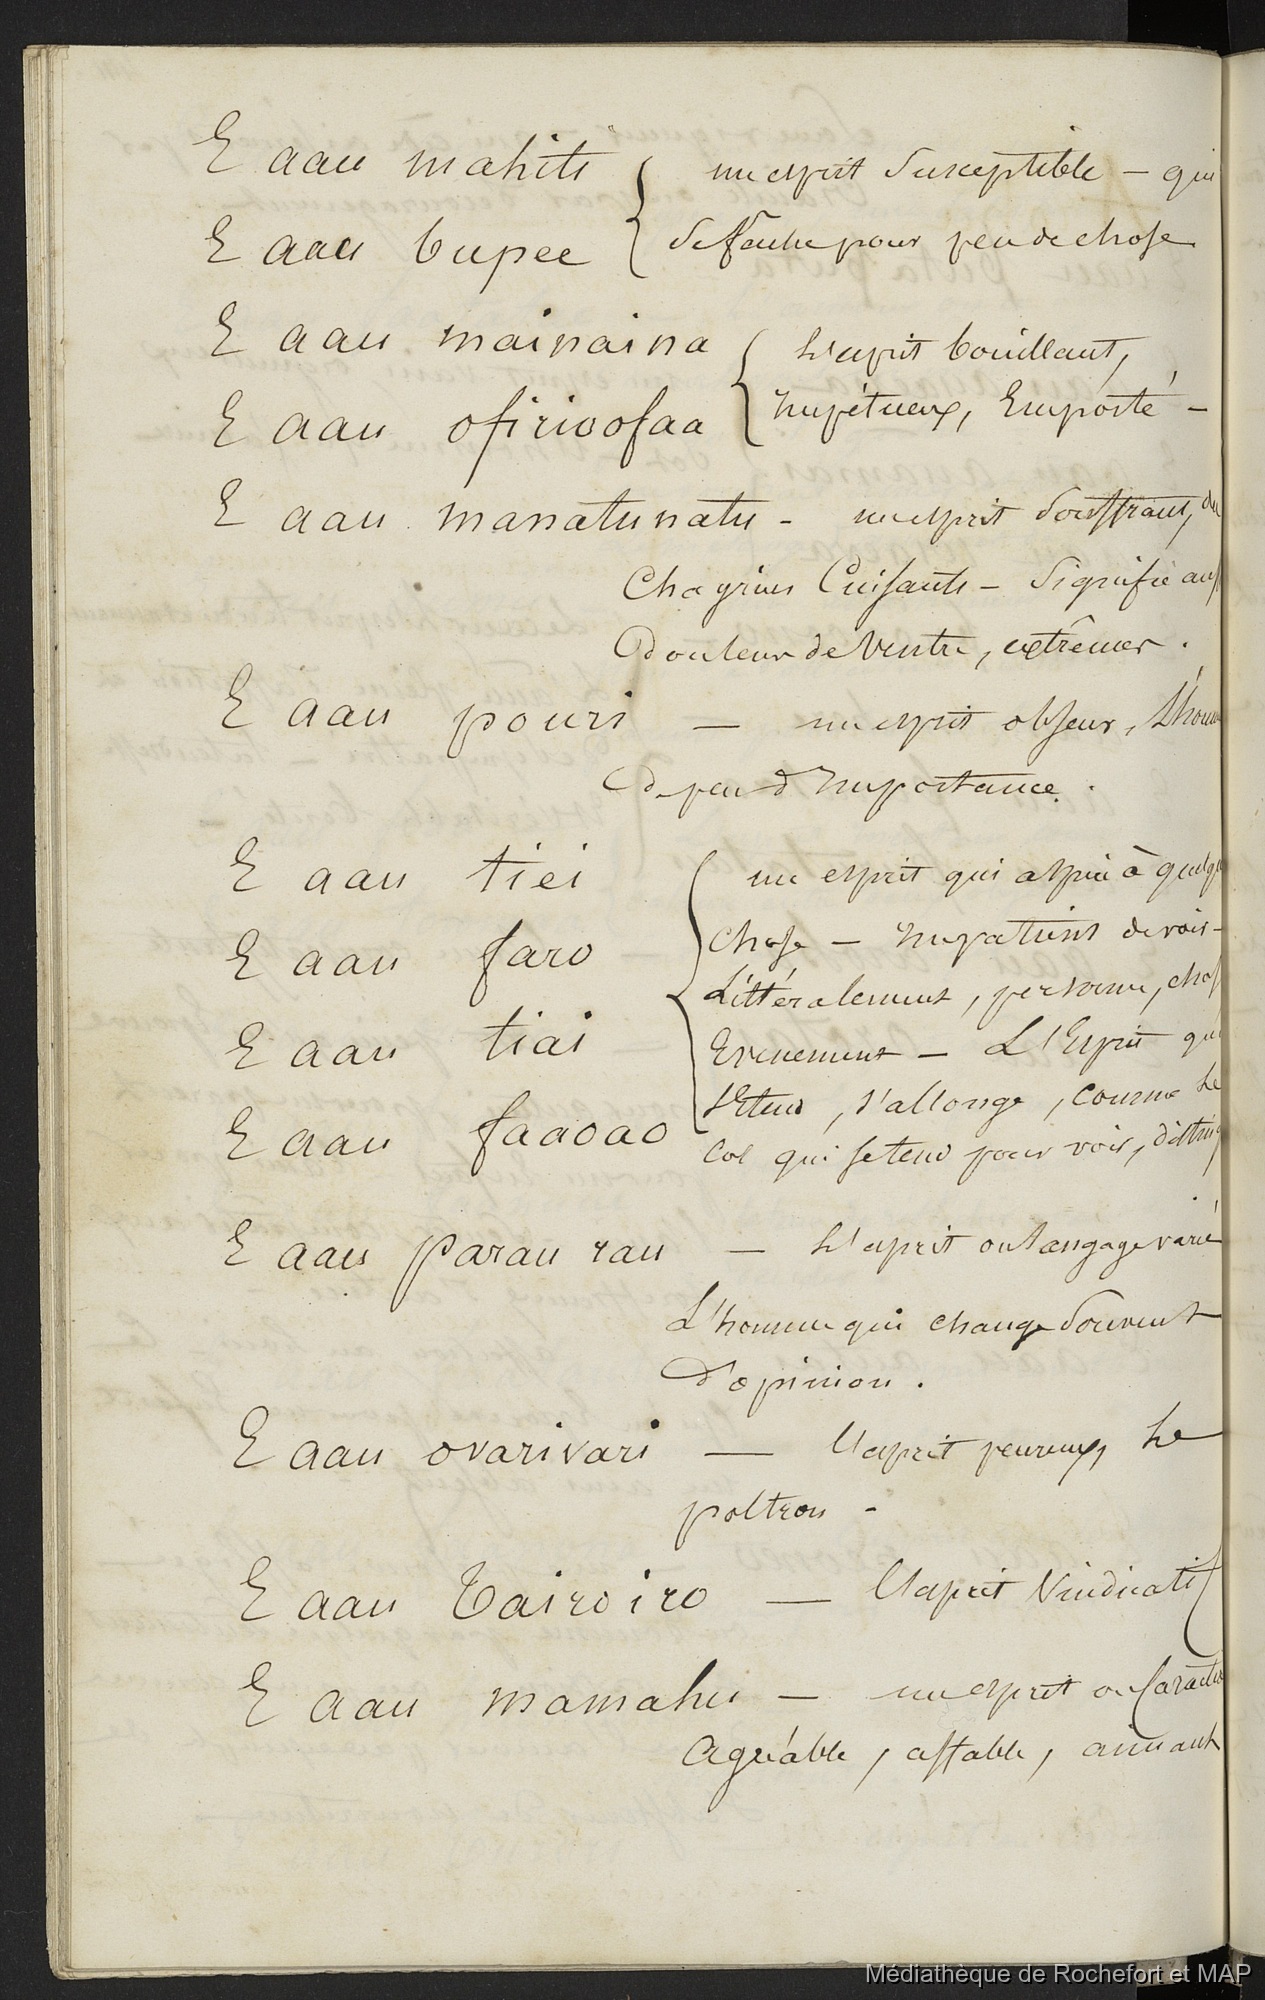 E aau mahiti { un esprit susceptible – qui
E aau bupee { se fâche pour peu de chose
E aau mainaina { L'esprit bouillant,
E aau ofirioofaa { Impétueux, Emporté –
E aau manatunatu – un esprit souffrant, du
Chagrins Cuisants – signifie auss
Douleur de ventre, extrêmes.
E aau pouri – un esprit obscur, L'hom
de peu d'Importance.
E aau tiei { un esprit qui aspire à quelqu
E aau faro chose – Impatient de voir –
Littéralement, personne, chos
E aau tiai Evenement – L'Esprit qui
s'étend, s'allonge, comme le
E aau faaoao
Col qui se tend pour voir, disting
E aau parau rau – L'esprit ou langage varié
L'homme qui change souvent
d'opinion.
E aau ovarivari – l'esprit peureux, le
poltron –
E aau tairoiro – l'esprit vindicatif
E aau mamahu – un esprit ou Caractè
agréable, affable, aimant
Médiathèque de Rochefort et MAP